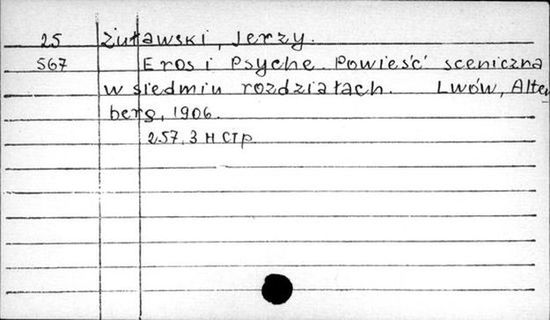 25 Żuławski, Jerzy.
567 Eros i Psyche. Powieść sceniczna
w siedmiu rozdziałach. Lwów, Alten
berg, 1906.
257, 3 н стр.